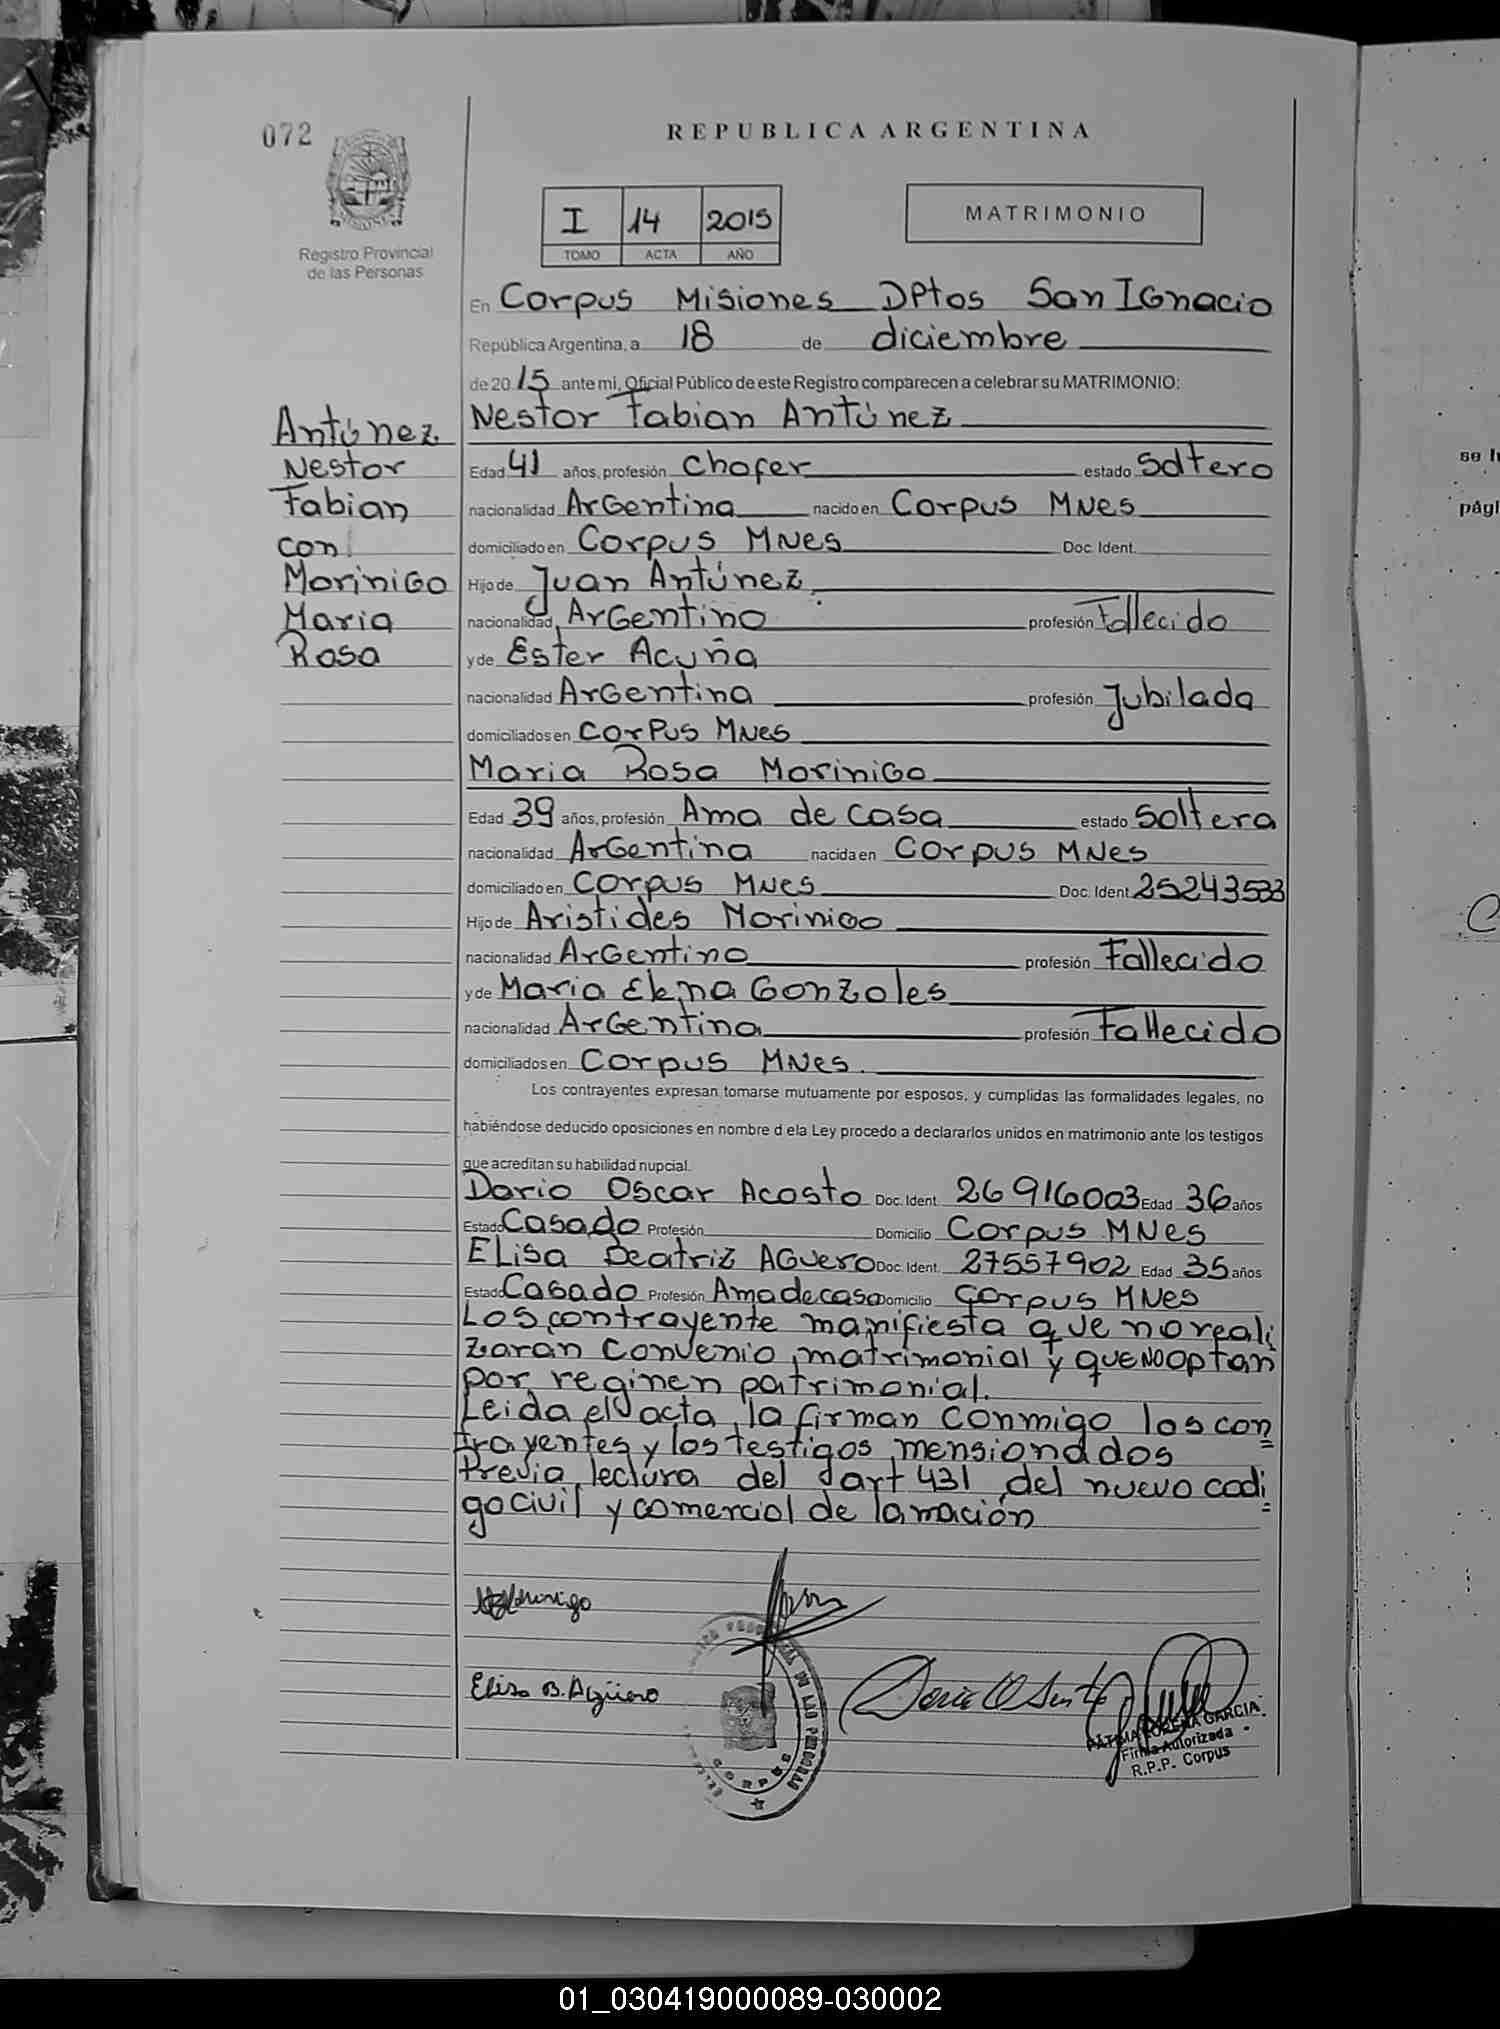 072
REPUBLICA ARGENTINA
I 14 2015
TOMO ACTA AÑO
MATRIMONIO
Registro Provincial
de las Personas
En Corpus Misiones DPtos San IGnacio
República Argentina, a 18 de diciembre
de 20 15 ante mi, Oficial Público de este Registro comparecen a celebrar su MATRIMONIO:
Antúnez
Nestor
Fabian
con
MoriniGo
Maria
Rosa
Nestor Fabian Antúnez
Edad 41 años, profesión Chofer estado Soltero
nacionalidad ArGentina nacido en Corpus MNes
domiciliado en Corpus MNes Doc. Ident.
Hijo de Juan Antúnez
nacionalidad ArGentino profesión Fallecido
y de Ester Acuña
nacionalidad ArGentina profesión Jubilada
domiciliados en CorPus MNes
Maria Rosa MoriniGo
Edad 39 años, profesión Ama de casa estado Soltera
nacionalidad ArGentina nacida en Corpus MNes
domiciliado en Corpus MNes Doc. Ident. 25243533
Hijo de Aristides MoriniGo
nacionalidad ArGentino profesión Fallecido
y de Maria Elena Gonzoles
nacionalidad ArGentina profesión Fallecido
domiciliados en Corpus MNes.
Los contrayentes expresan tomarse mutuamente por esposos, y cumplidas las formalidades legales, no
habiéndose deducido oposiciones en nombre d ela Ley procedo a declararlos unidos en matrimonio ante los testigos
que acreditan su habilidad nupcial.
Dario Oscar Acosto Doc. Ident. 26916003 Edad 36 años
Estado Casado Profesión Domicilio Corpus MNes
ELisa Beatriz AGuero Doc. Ident. 27557902 Edad 35 años
Estado Casado Profesión Ama de casa Domicilio Corpus MNes
Los contrayente manifiesta que no reali
zaran convenio matrimonial y que NO optan
por reginen patrimonial.
Leida el acta la firman conmigo los con
trayentes y los testigos mensionados
Previa lectura del art 431 del nuevo codi
go civil y comercial de la nación
Elisa B. Agüero
CORPUS
PATRICIA LORENA GARCIA
Firma Autorizada
R.P.P. Corpus
se
pági
01_030419000089-030002